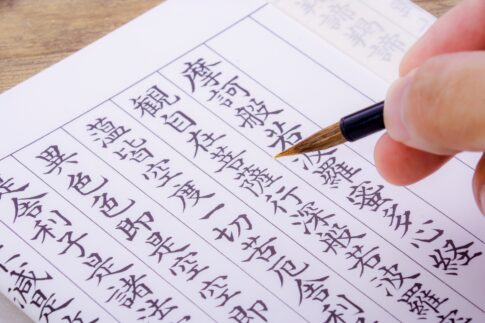 諦羯諦
摩訶般若波羅蜜多心経
観自在菩薩行深般若波羅
蘊皆空度一切苦厄舎利
異色色即是空空即
是舎利子是諸法
不減是